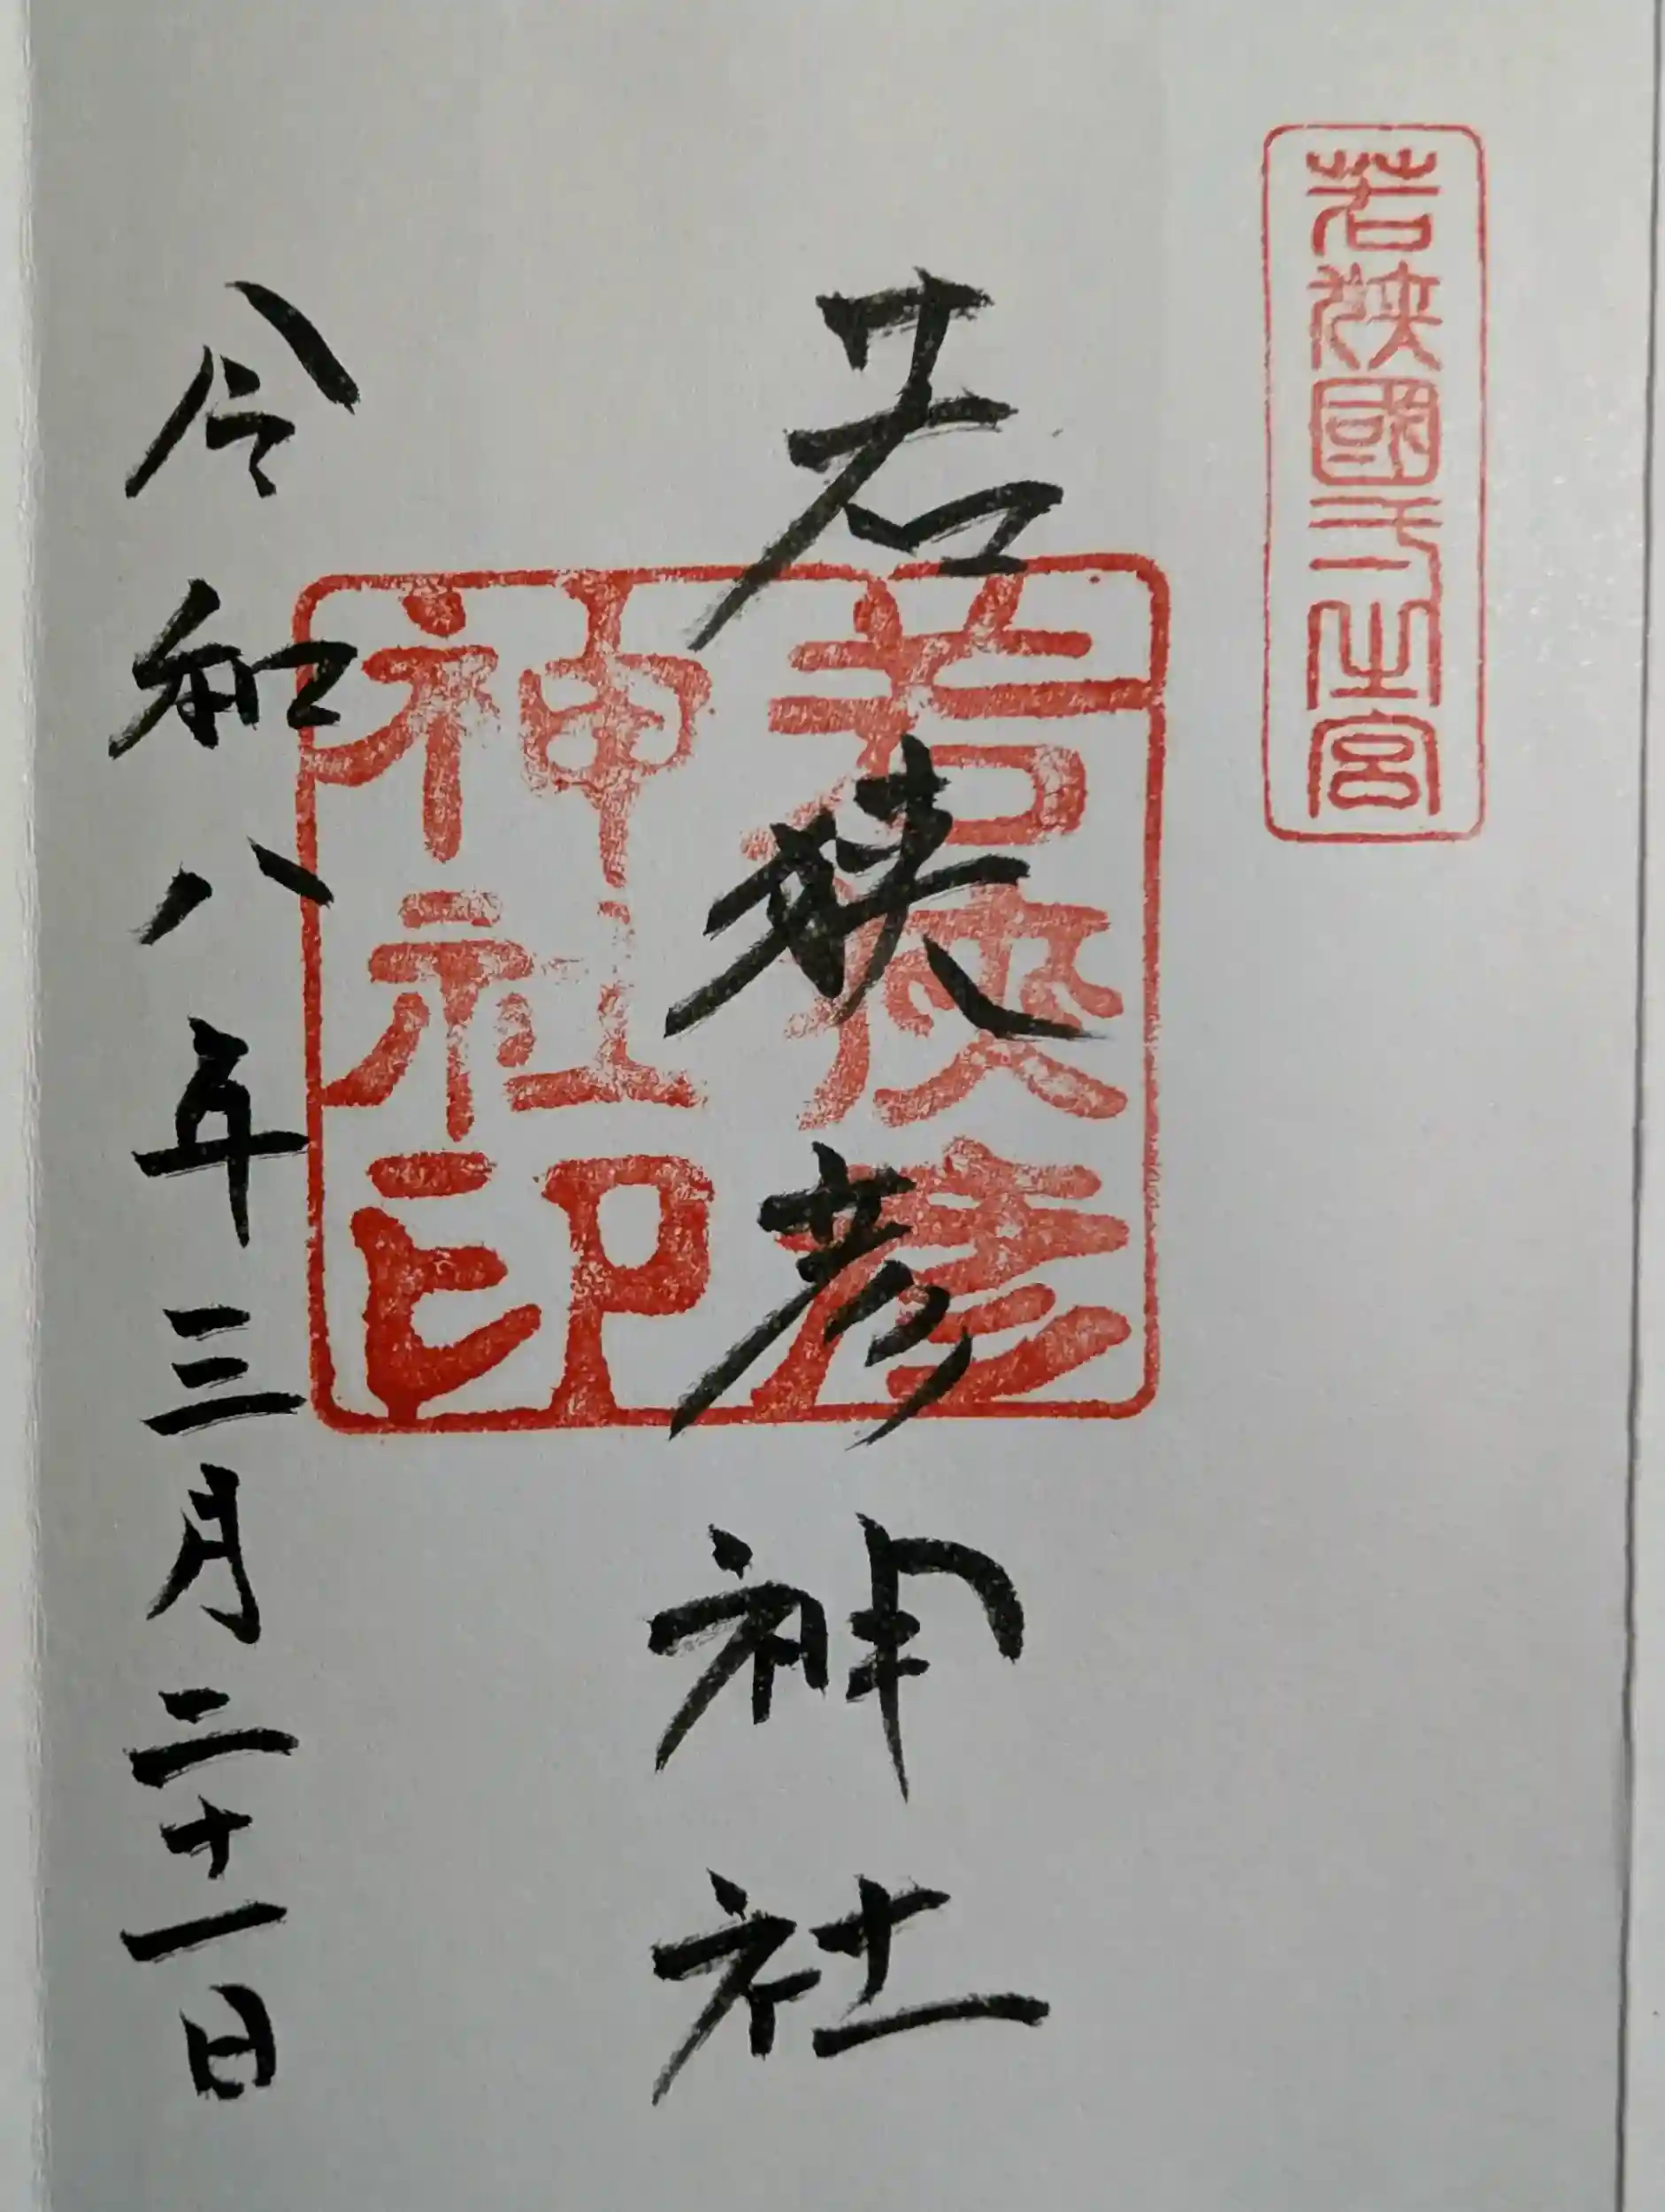 若狹國弌之宮
若狭彦神社
若狹彦
神社印
令和八年三月二十一日